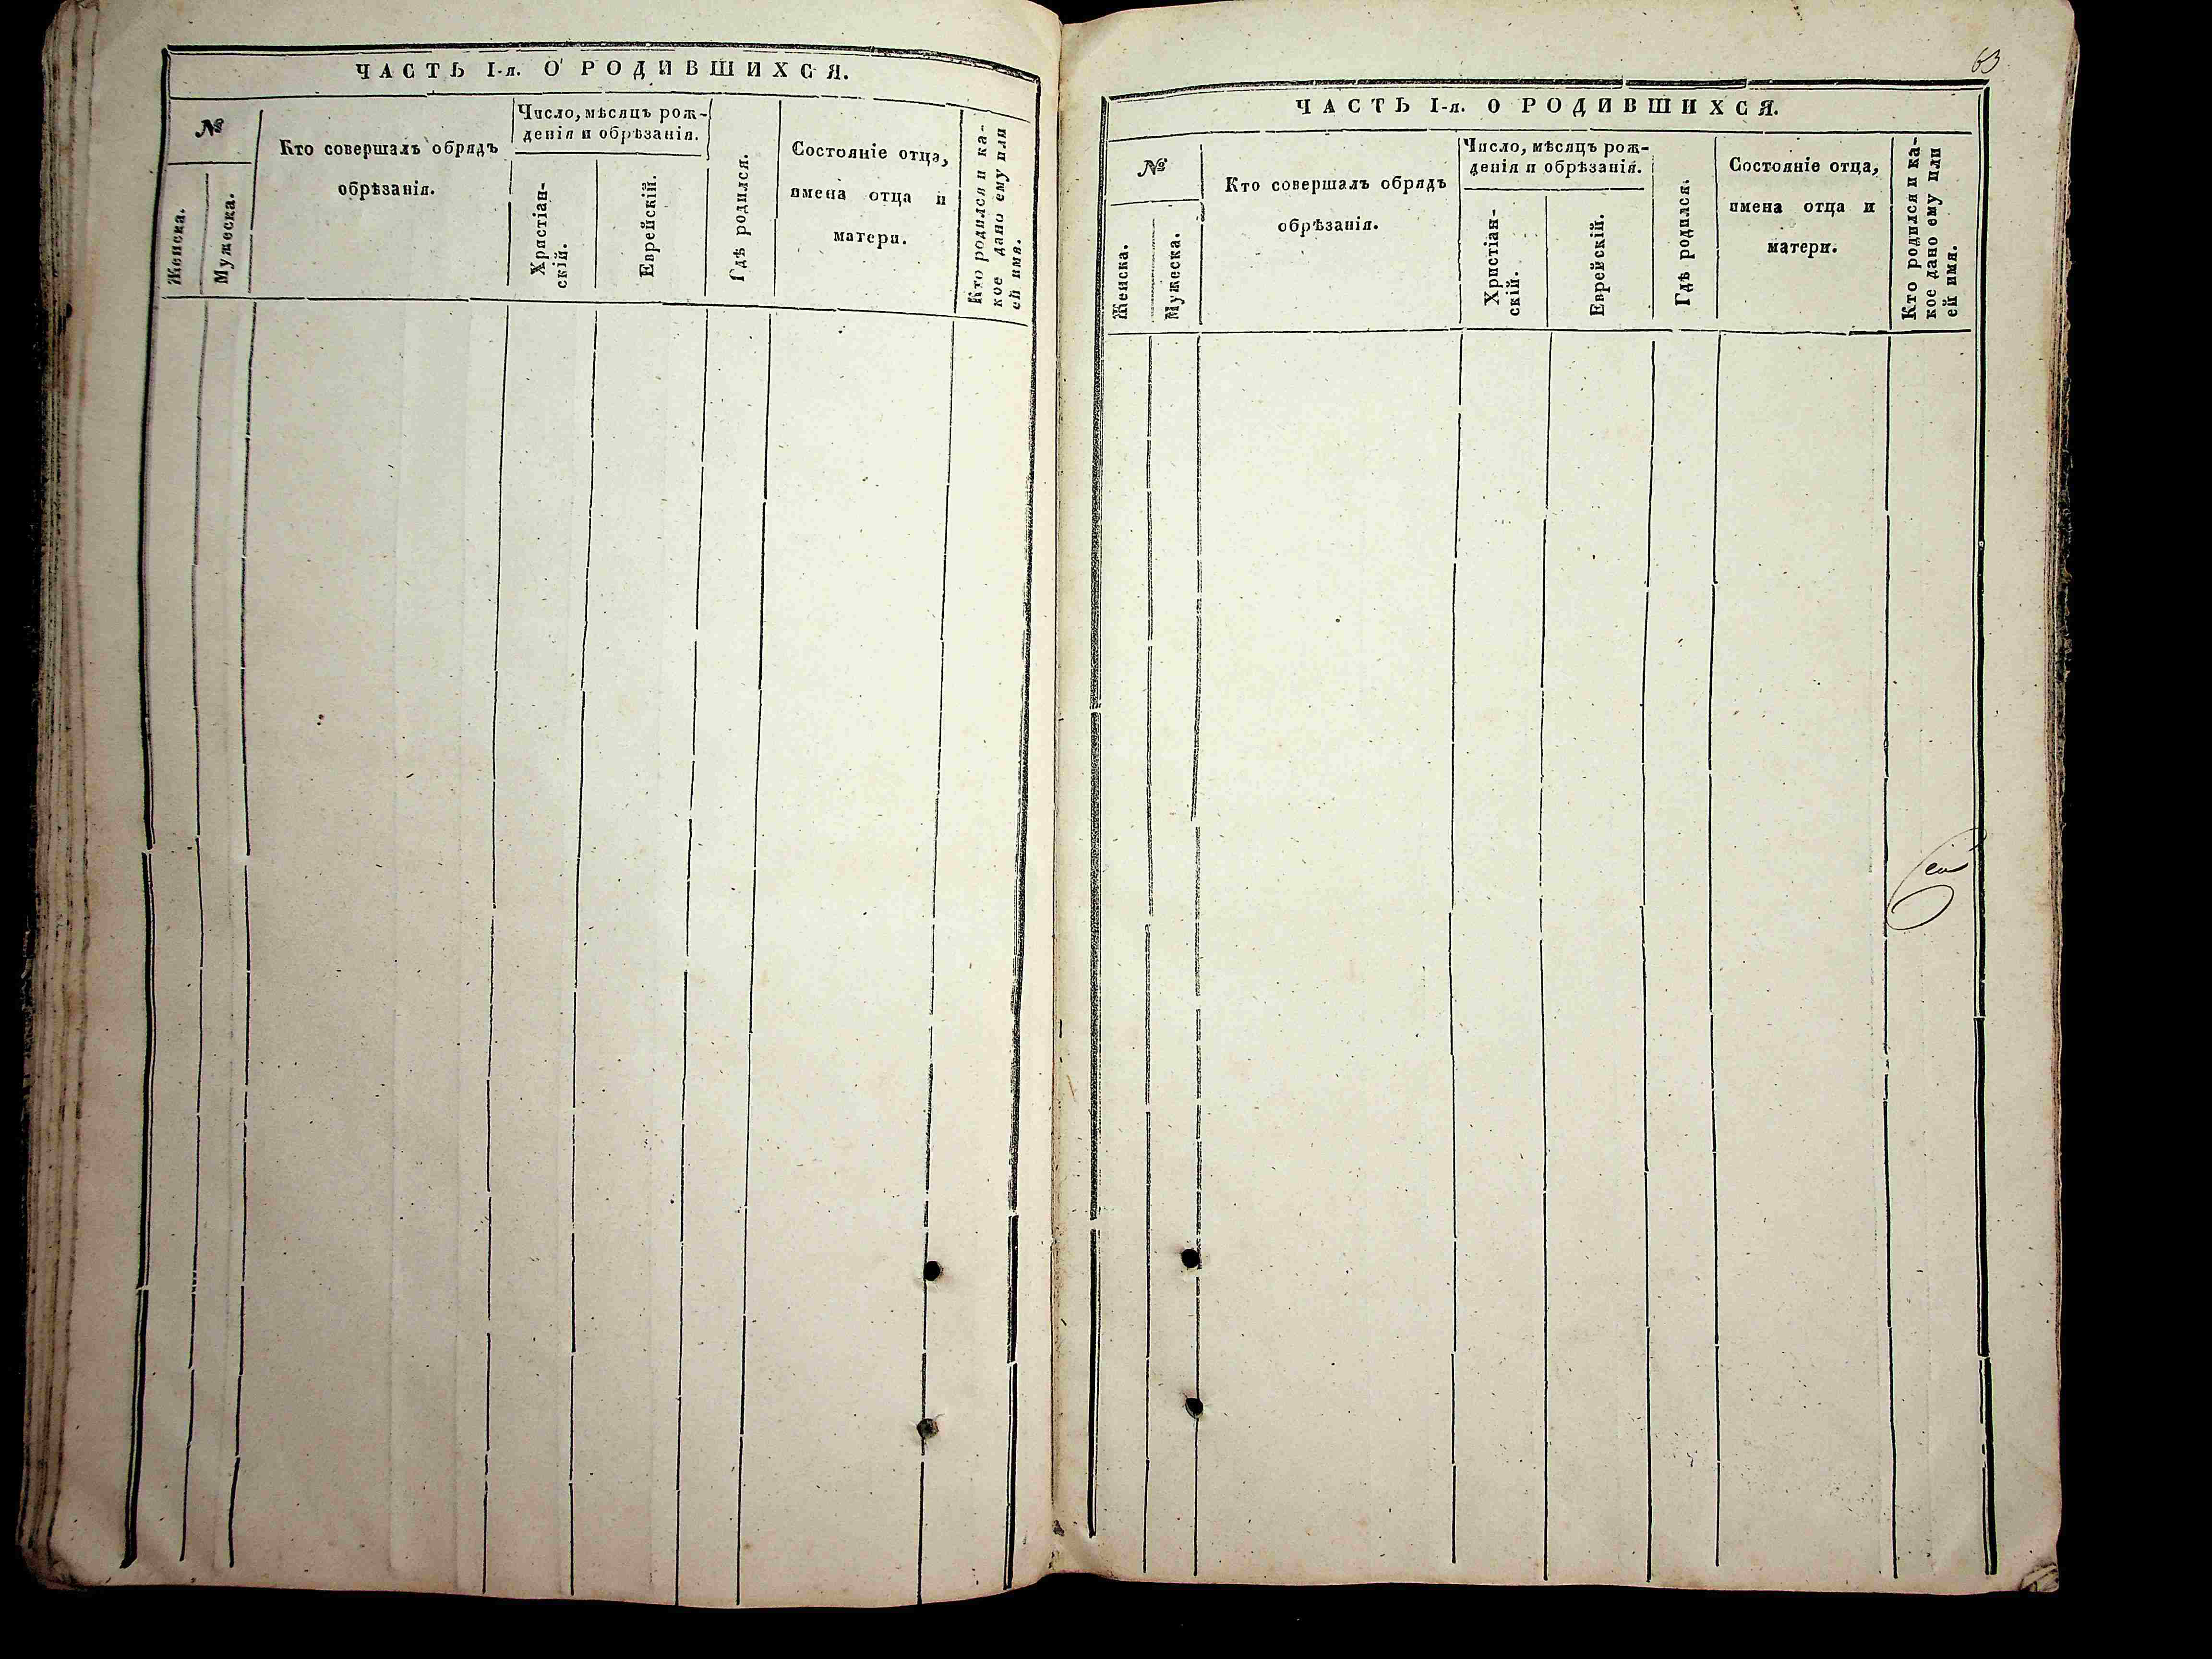 ЧАСТЬ I-я. О РОДИВШИХСЯ.
№
Женска.
Мужеска.
Кто совершалъ обрядъ
обрѣзанія.
Число, мѣсяцъ рож-
денія и обрѣзанія.
Христіан-
скій.
Еврейскій.
Гдѣ родился.
Состояніе отца,
имена отца и
матери.
Кто родился и ка-
кое дано ему или
ей имя.
63
ЧАСТЬ I-я. О РОДИВШИХСЯ.
№
Женска.
Мужеска.
Кто совершалъ обрядъ
обрѣзанія.
Число, мѣсяцъ рож-
денія и обрѣзанія.
Христіан-
скій.
Еврейскій.
Гдѣ родился.
Состояніе отца,
имена отца и
матери.
Кто родился и ка-
кое дано ему или
ей имя.